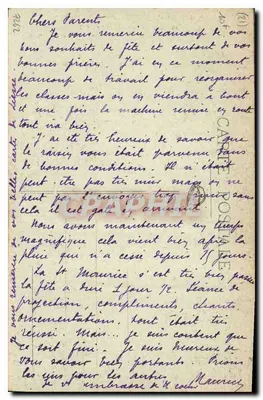 Chers Parents
Je vous remercie beaucoup de vos
bons souhaits de fête et surtout de vos
bonnes prières. J'ai en ce moment
beaucoup de travail pour réorganiser
les classes mais on en viendra à bout
et une fois la machine remise en route
tout ira bien.
J'ai été très heureux de savoir que
le raisin vous était parvenu dans
de bonnes conditions. Il n'était
peut-être pas très mûr mais on ne
peut pas sans
cela il est gâté avant.
Nous avons maintenant un temps
magnifique cela vient bien après la
pluie qui n'a cessé depuis 15 jours.
La St Maurice s'est très bien passée
la fête a duré 1 jour ½. Séance de
projection, compliments, chants
ornementation. Tout était très
réussi. Mais... je suis content que
ce soit fini. Je suis heureux de
vous savoir bien portants. Prions
les uns pour les autres
Je vous embrasse de tt coeur Maurice
je vous remercie de vos belles cartes de
CARTE POSTALE
CPAPHIL
2426
(21)